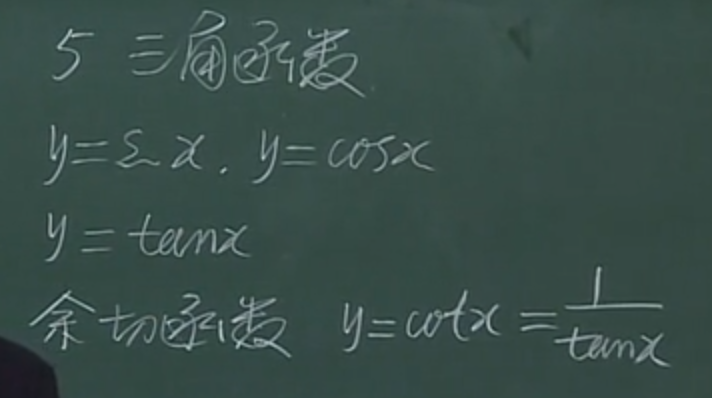 5 三角函数
y=sin x. y=cosx
y=tanx
余切函数 y=cotx=1/tanx